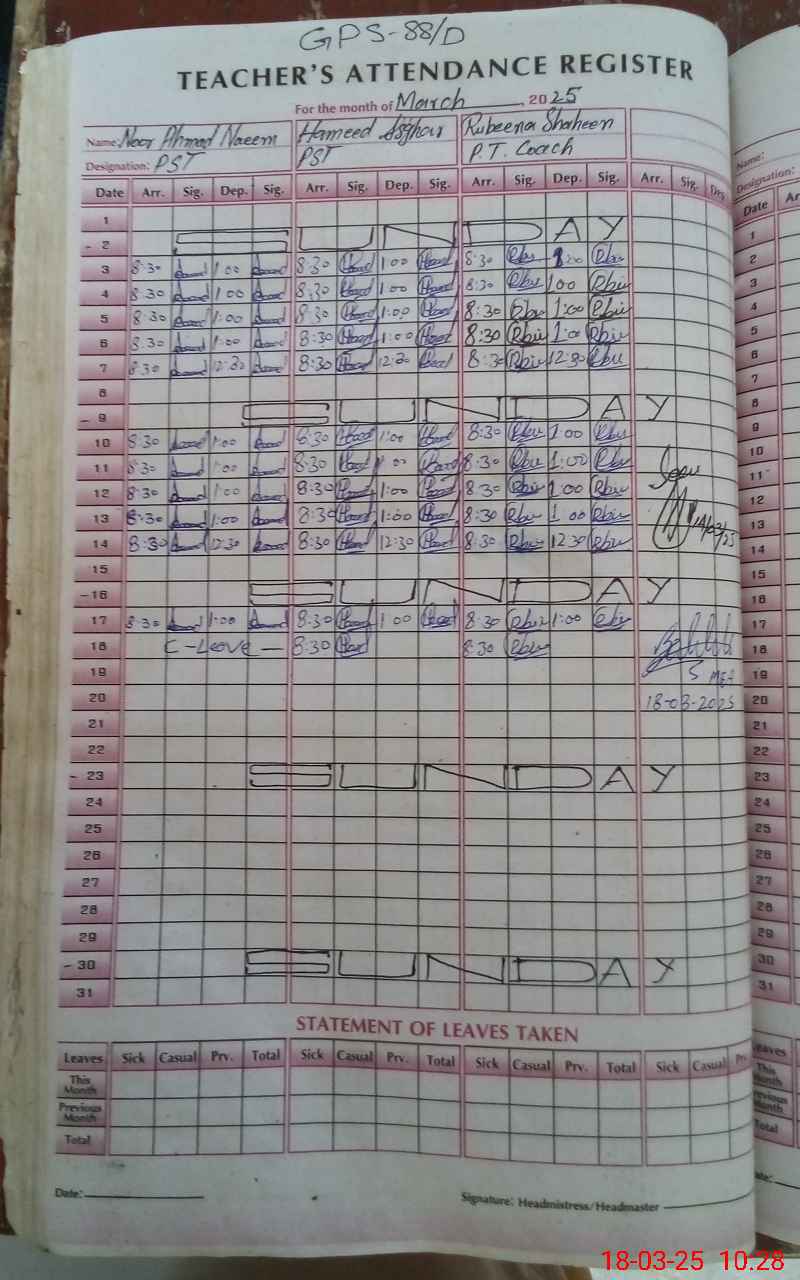 GPS-88/D
TEACHER'S ATTENDANCE REGISTER
For the month of March, 2025
Name: Noor Ahmad Naeem Hameed Asghar Rubeena Shaheen
Designation: PST PST P.T. Coach
Date Arr. Sig. Dep. Sig. Arr. Sig. Dep. Sig. Arr. Sig. Dep. Sig. Arr. Sig. Dep
1
- 2 SUNDAY
3 8:30 1:00 8:30 1:00 8:30
4 8:30 1:00 8:30 1:00 8:30 1:00
5 8:30 1:00 8:30 1:00 8:30 1:00
6 8:30 1:00 8:30 1:00 8:30 1:00
7 8:30 12:30 8:30 12:30 8:30 12:30
8
- 9 SUNDAY
10 8:30 1:00 8:30 1:00 8:30 1:00
11 8:30 1:00 8:30 1:00 8:30 1:00
12 8:30 1:00 8:30 1:00 8:30 1:00
13 8:30 1:00 8:30 1:00 8:30 1:00
14 8:30 12:30 8:30 12:30 8:30 12:30 14/03/25
15
- 16 SUNDAY
17 8:30 1:00 8:30 1:00 8:30 1:00
18 C-Leave — 8:30 8:30
19
20 18-03-2025
21
22
- 23 SUNDAY
24
25
26
27
28
29
- 30 SUNDAY
31
STATEMENT OF LEAVES TAKEN
Leaves Sick Casual Prv. Total Sick Casual Prv. Total Sick Casual Prv. Total Sick Casual
This Month
Previous Month
Total
Date: Signature: Headmistress/Headmaster
Name:
Designation:
Date
1
2
3
4
5
6
7
8
9
10
11
12
13
14
15
16
17
18
19
20
21
22
23
24
25
26
27
28
29
30
31
18-03-25 10.28